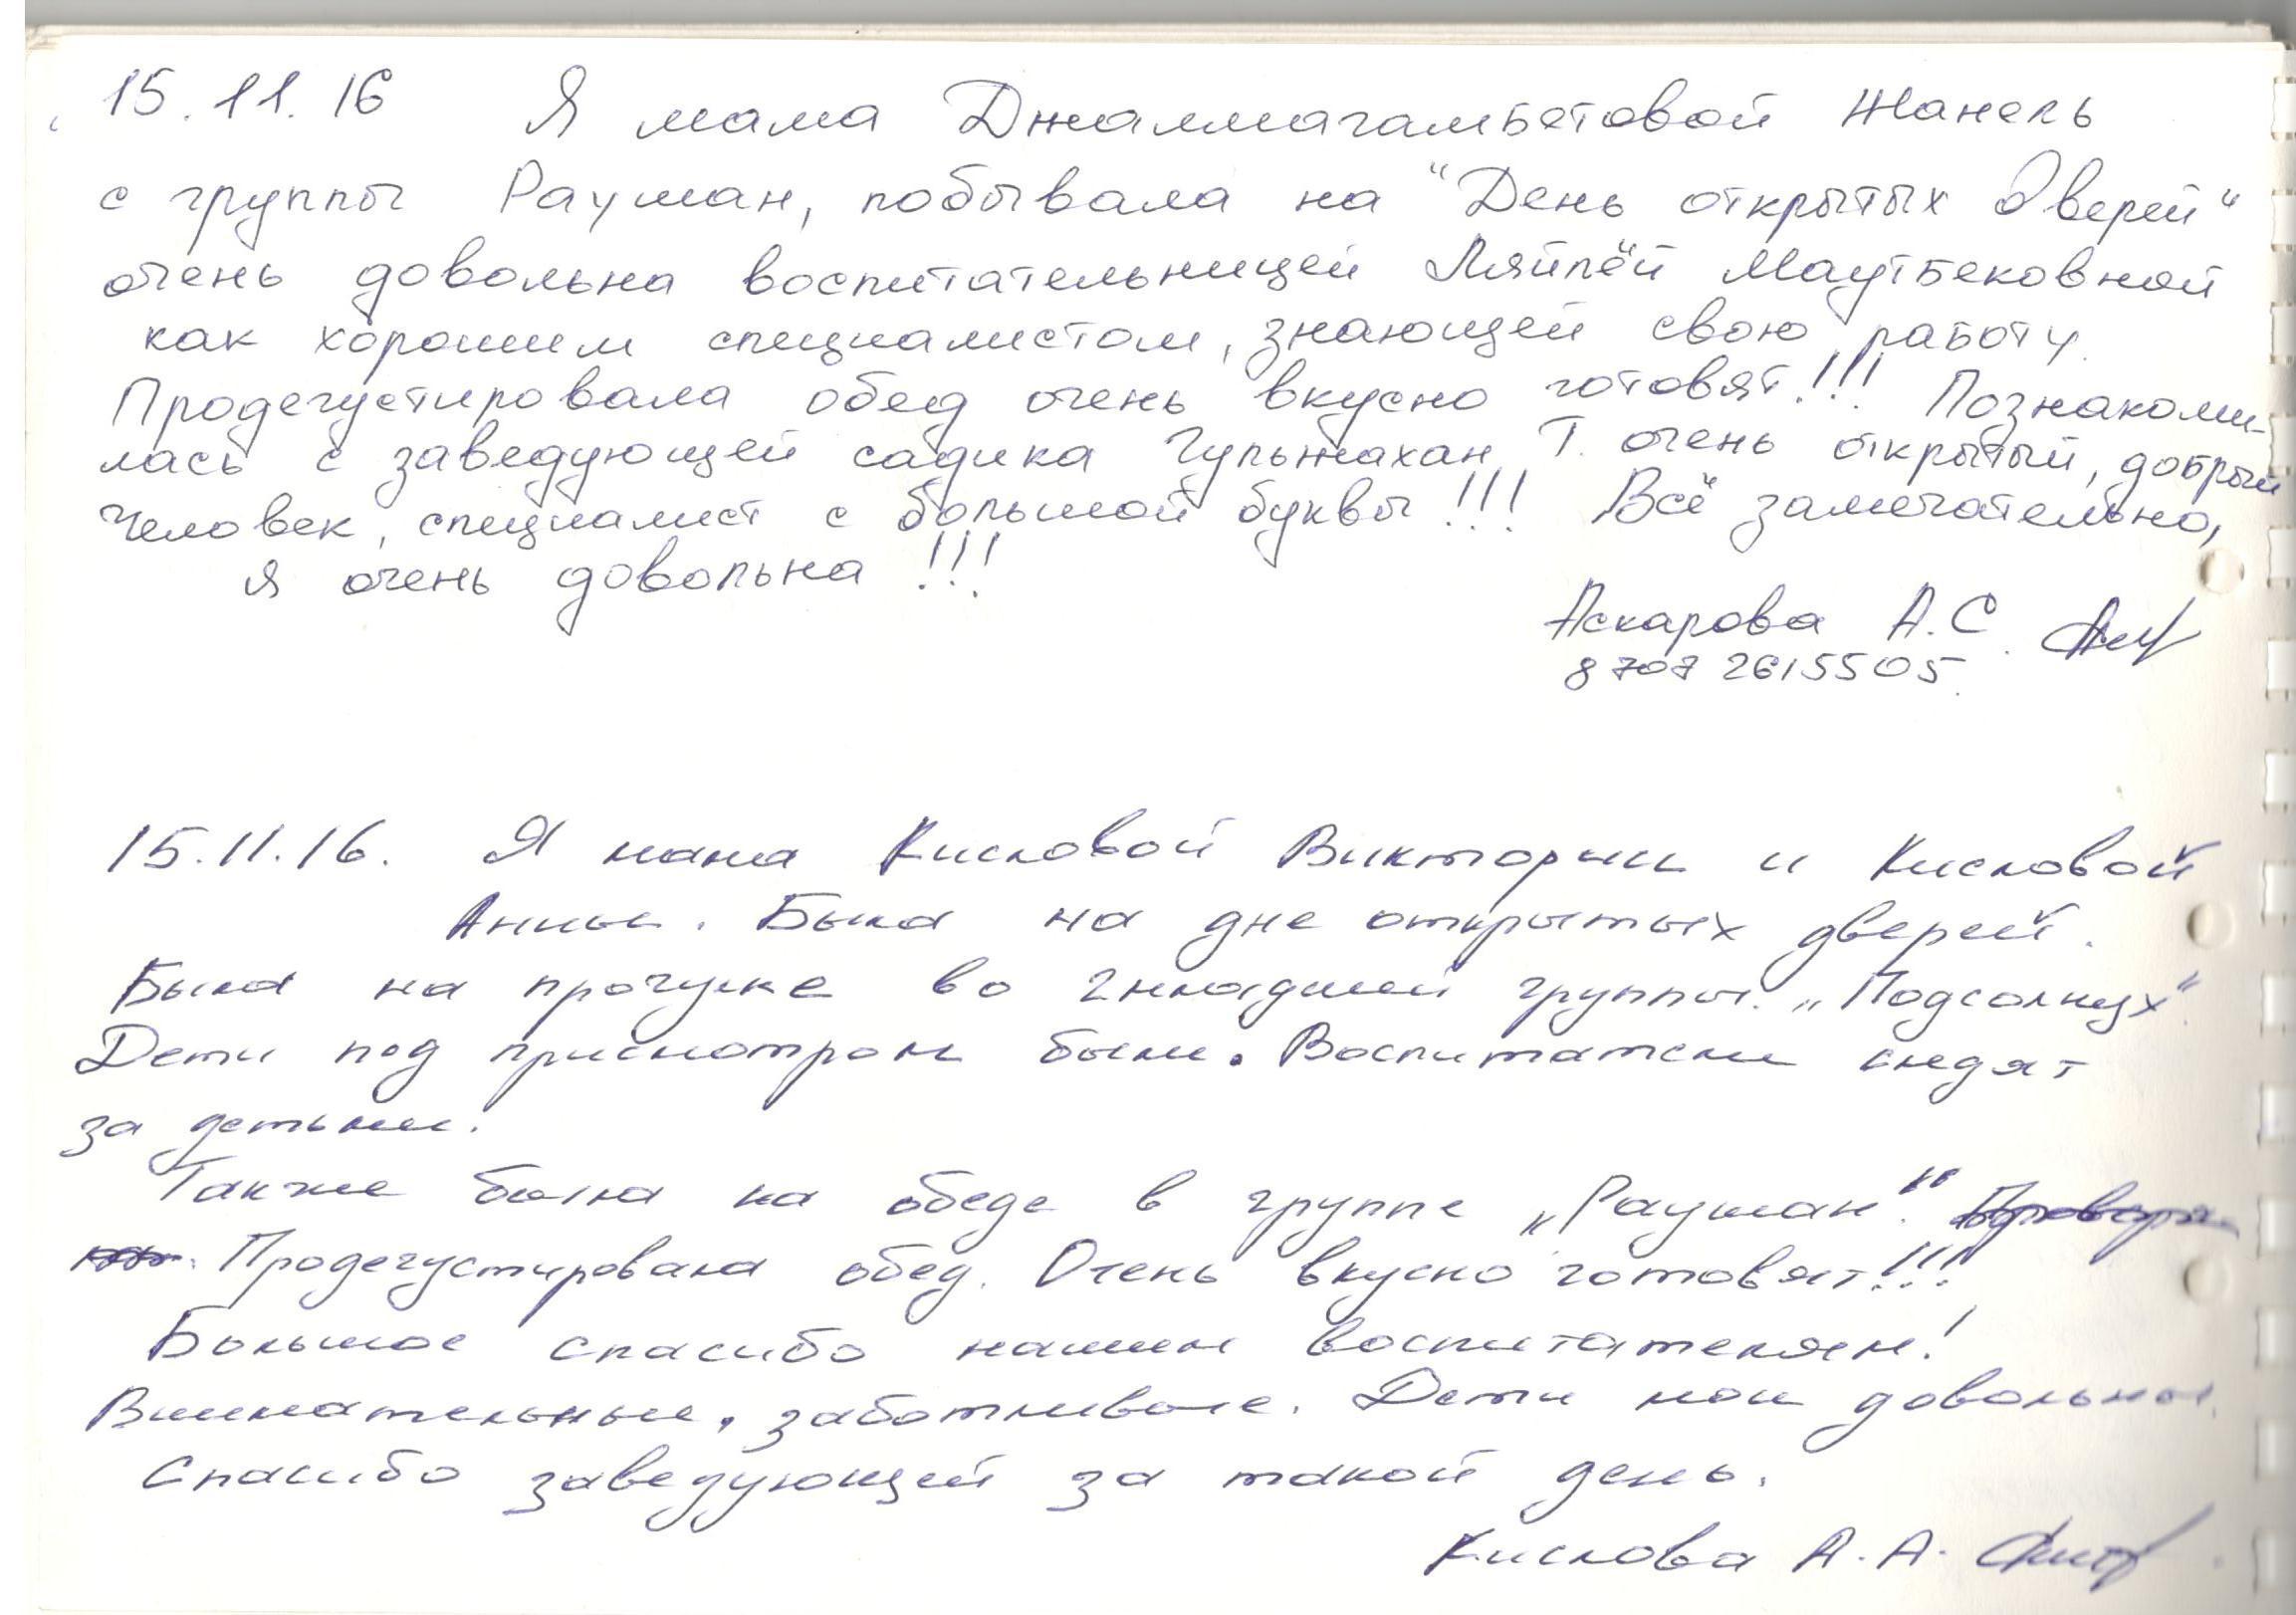 15.11.16 Я мама Джалмагамбетовой Жанель
с группы Рауман, побывала на "День открытых дверей"
очень довольна воспитательницей Ляйлёй Маутбековной
как хорошим специалистом, знающей свою работу.
Продегустировала обед очень вкусно готовят!!! Познакоми-
лась с заведующей садика Гульжахан Т. очень открытый, добрый
человек, специалист с большой буквы!!! Всё замечательно,
я очень довольна!!!
Аскарова А.С.
8 707 2615505.
15.11.16. Я мама Кисловой Виктории и Кисловой
Анны. Была на дне открытых дверей.
Была на прогулке во 2 младшей группы. „Подсолнух".
Дети под присмотром были. Воспитатели следят
за детьми.
Также была на обеде в группе „Рауман".
Продегустировала обед. Очень вкусно готовят!!!
Большое спасибо нашим воспитателям!
Внимательные, заботливые. Дети мои довольны.
Спасибо заведующей за такой день.
Кислова А.А.